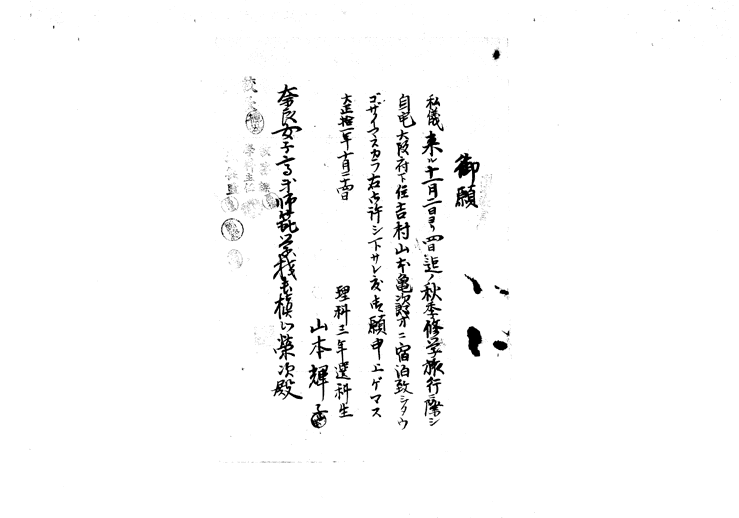 御願
私儀来ル十一月二日ヨリ四日迄ノ秋季修学旅行ニ際シ
自宅大阪府下住吉村山本亀次郎方ニ宿泊致シタウ
ゴザイマスカラ右御許シ下サレ度御願申上ゲマス
大正拾一年十月二十四日
理科三年選科生
山本輝子
奈良女子高等師範学校長槇山榮次殿